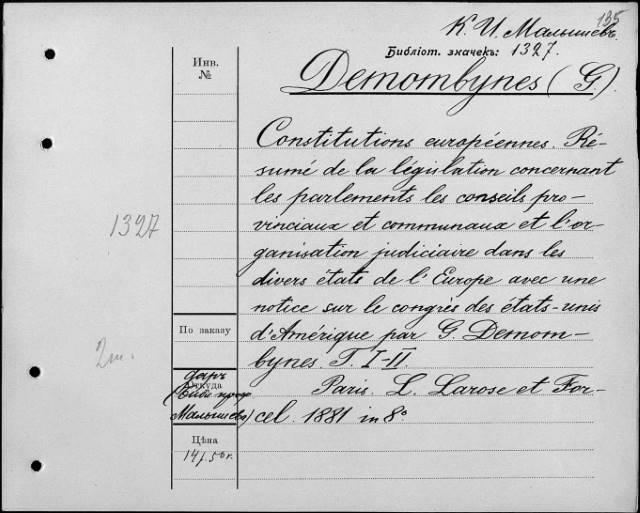 195
К. И. Малышевъ
Библіот. значекъ: 1327.
Инв.
№
Demombynes (G.).
Constitutions européennes. Ré-
sumé de la législation concernant
les parlements les conseils pro-
vinciaux et communaux et l'or-
1327
ganisation judiciaire dans les
divers états de l'Europe avec une
notice sur le congrès des états-unis
По заказу
d'Amérique par G. Demom-
2 т.
bynes. T. I-II.
даръ
Откуда
Малышева)
Paris. L. Larose et For-
cel. 1881 in 8°
Цѣна
14 f. 50 c.